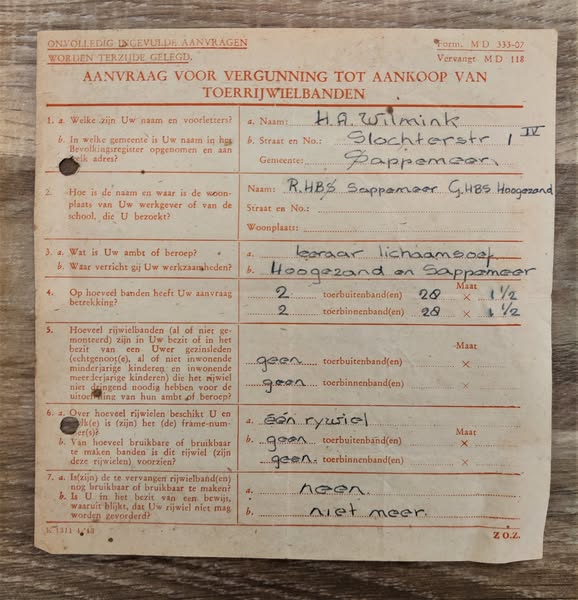 ONVOLLEDIG INGEVULDE AANVRAGEN
WORDEN TERZIJDE GELEGD.
Form. MD 333-07
Vervangt MD 118
AANVRAAG VOOR VERGUNNING TOT AANKOOP VAN
TOERRIJWIELBANDEN
1. a. Welke zijn Uw naam en voorletters?
a. Naam: H.A. Wilmink
b. In welke gemeente is Uw naam in het
Bevolkingsregister opgenomen en aan
welk adres?
b. Straat en No.: Slochterstr 1 IV
Gemeente: Sappemeer
2. Hoe is de naam en waar is de woon-
plaats van Uw werkgever of van de
school, die U bezoekt?
Naam: R.HBS Sappemeer G.HBS Hoogezand
Straat en No.:
Woonplaats:
3. a. Wat is Uw ambt of beroep?
a. leraar lichaamsoef.
b. Waar verricht gij Uw werkzaamheden?
b. Hoogezand en Sappemeer
4. Op hoeveel banden heeft Uw aanvraag
betrekking?
Maat
2 toerbuitenband(en) 28 × 1 1/2
2 toerbinnenband(en) 28 × 1 1/2
5. Hoeveel rijwielbanden (al of niet ge-
monteerd) zijn in Uw bezit of in het
bezit van een Uwer gezinsleden
(echtgenoot(e), al of niet inwonende
minderjarige kinderen en inwonende
meerderjarige kinderen) die het rijwiel
niet dringend noodig hebben voor de
uitoefening van hun ambt of beroep?
Maat
geen toerbuitenband(en) ×
geen toerbinnenband(en) ×
6. a. Over hoeveel rijwielen beschikt U en
welk(e) is (zijn) het (de) frame-num-
mer(s)?
a. één rywiel
b. Van hoeveel bruikbare of bruikbaar
te maken banden is dit rijwiel (zijn
deze rijwielen) voorzien?
Maat
b. geen toerbuitenband(en) ×
geen. toerbinnenband(en) ×
7. a. Is(zijn) de te vervangen rijwielband(en)
nog bruikbaar of bruikbaar te maken?
a. neen.
b. Is U in het bezit van een bewijs,
waaruit blijkt, dat Uw rijwiel niet mag
worden gevorderd?
b. niet meer.
Z.O.Z.